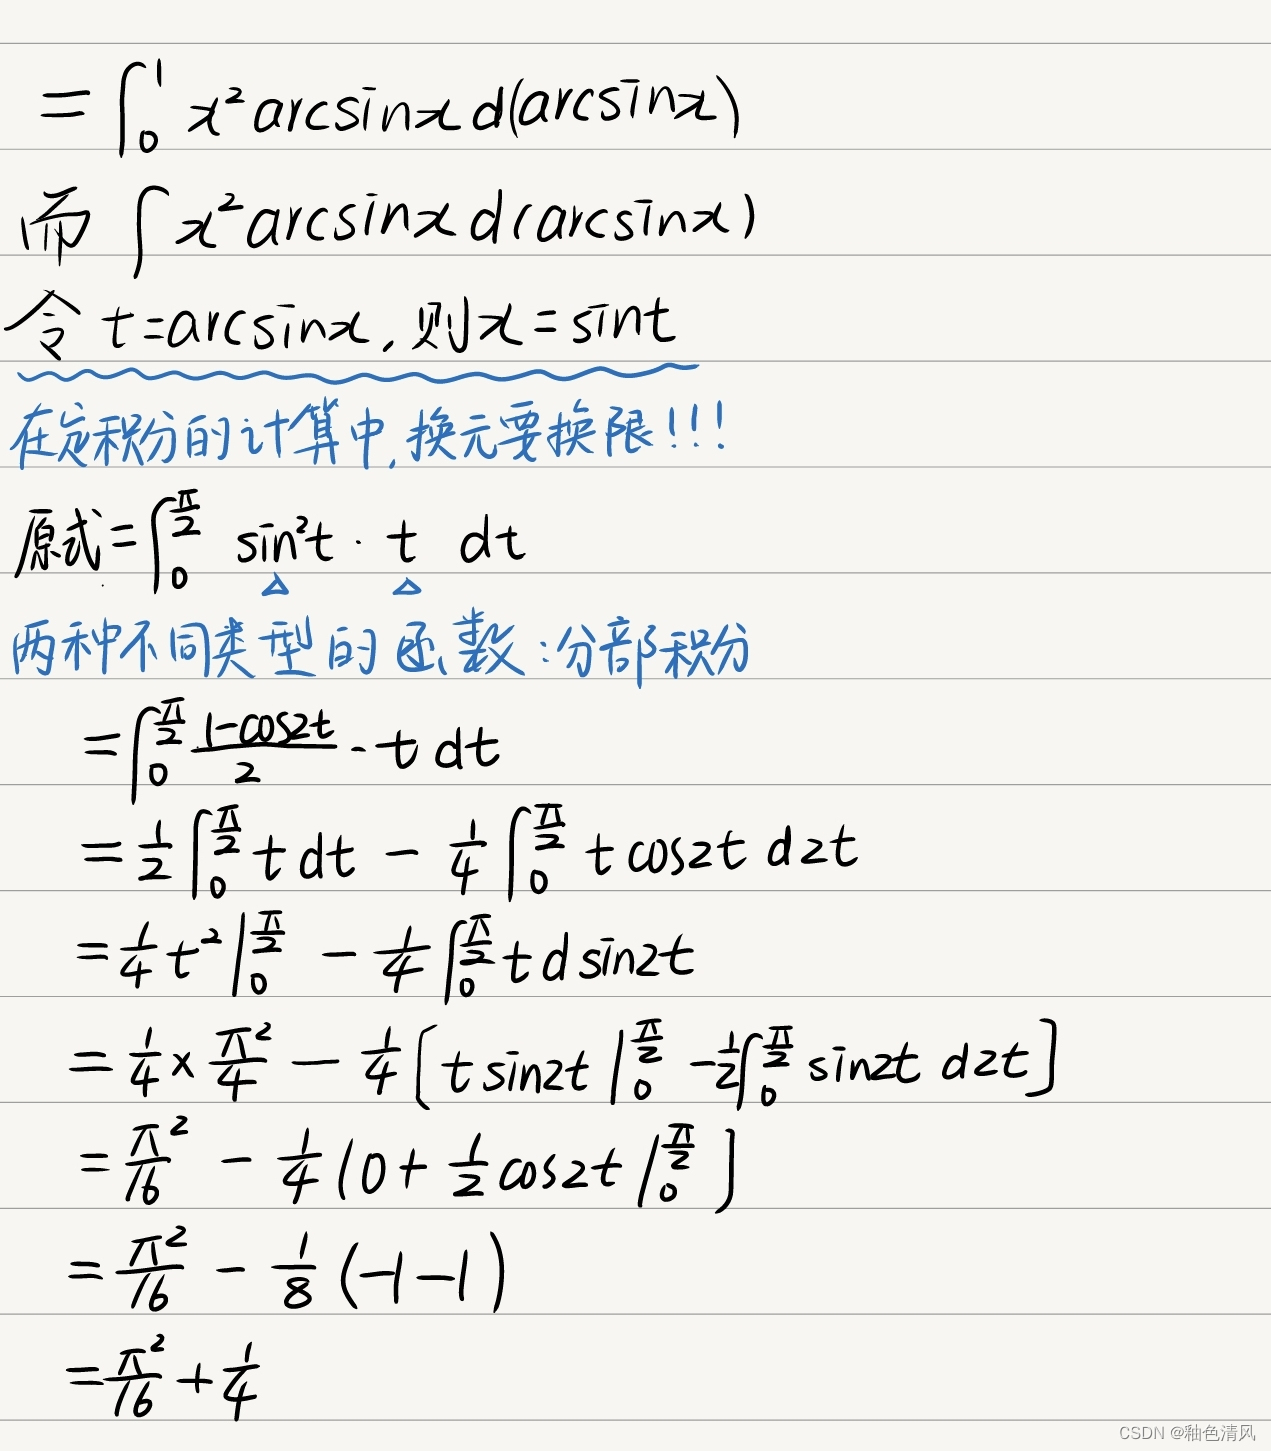 =∫₀¹ x²arcsinx d(arcsinx)
而 ∫x²arcsinx d(arcsinx)
令 t=arcsinx,则x=sint
在定积分的计算中,换元要换限!!!
原式=∫₀^(π/2) sin²t · t dt
两种不同类型的函数:分部积分
=∫₀^(π/2) (1-cos2t)/2 · t dt
=1/2 ∫₀^(π/2) t dt - 1/4 ∫₀^(π/2) t cos2t d2t
=1/4 t² |₀^(π/2) - 1/4 ∫₀^(π/2) t d sin2t
=1/4 × π²/4 - 1/4 [t sin2t |₀^(π/2) - 1/2 ∫₀^(π/2) sin2t d2t]
=π²/16 - 1/4 (0 + 1/2 cos2t |₀^(π/2)]
=π²/16 - 1/8 (-1-1)
=π²/16 + 1/4
CSDN @釉色清风